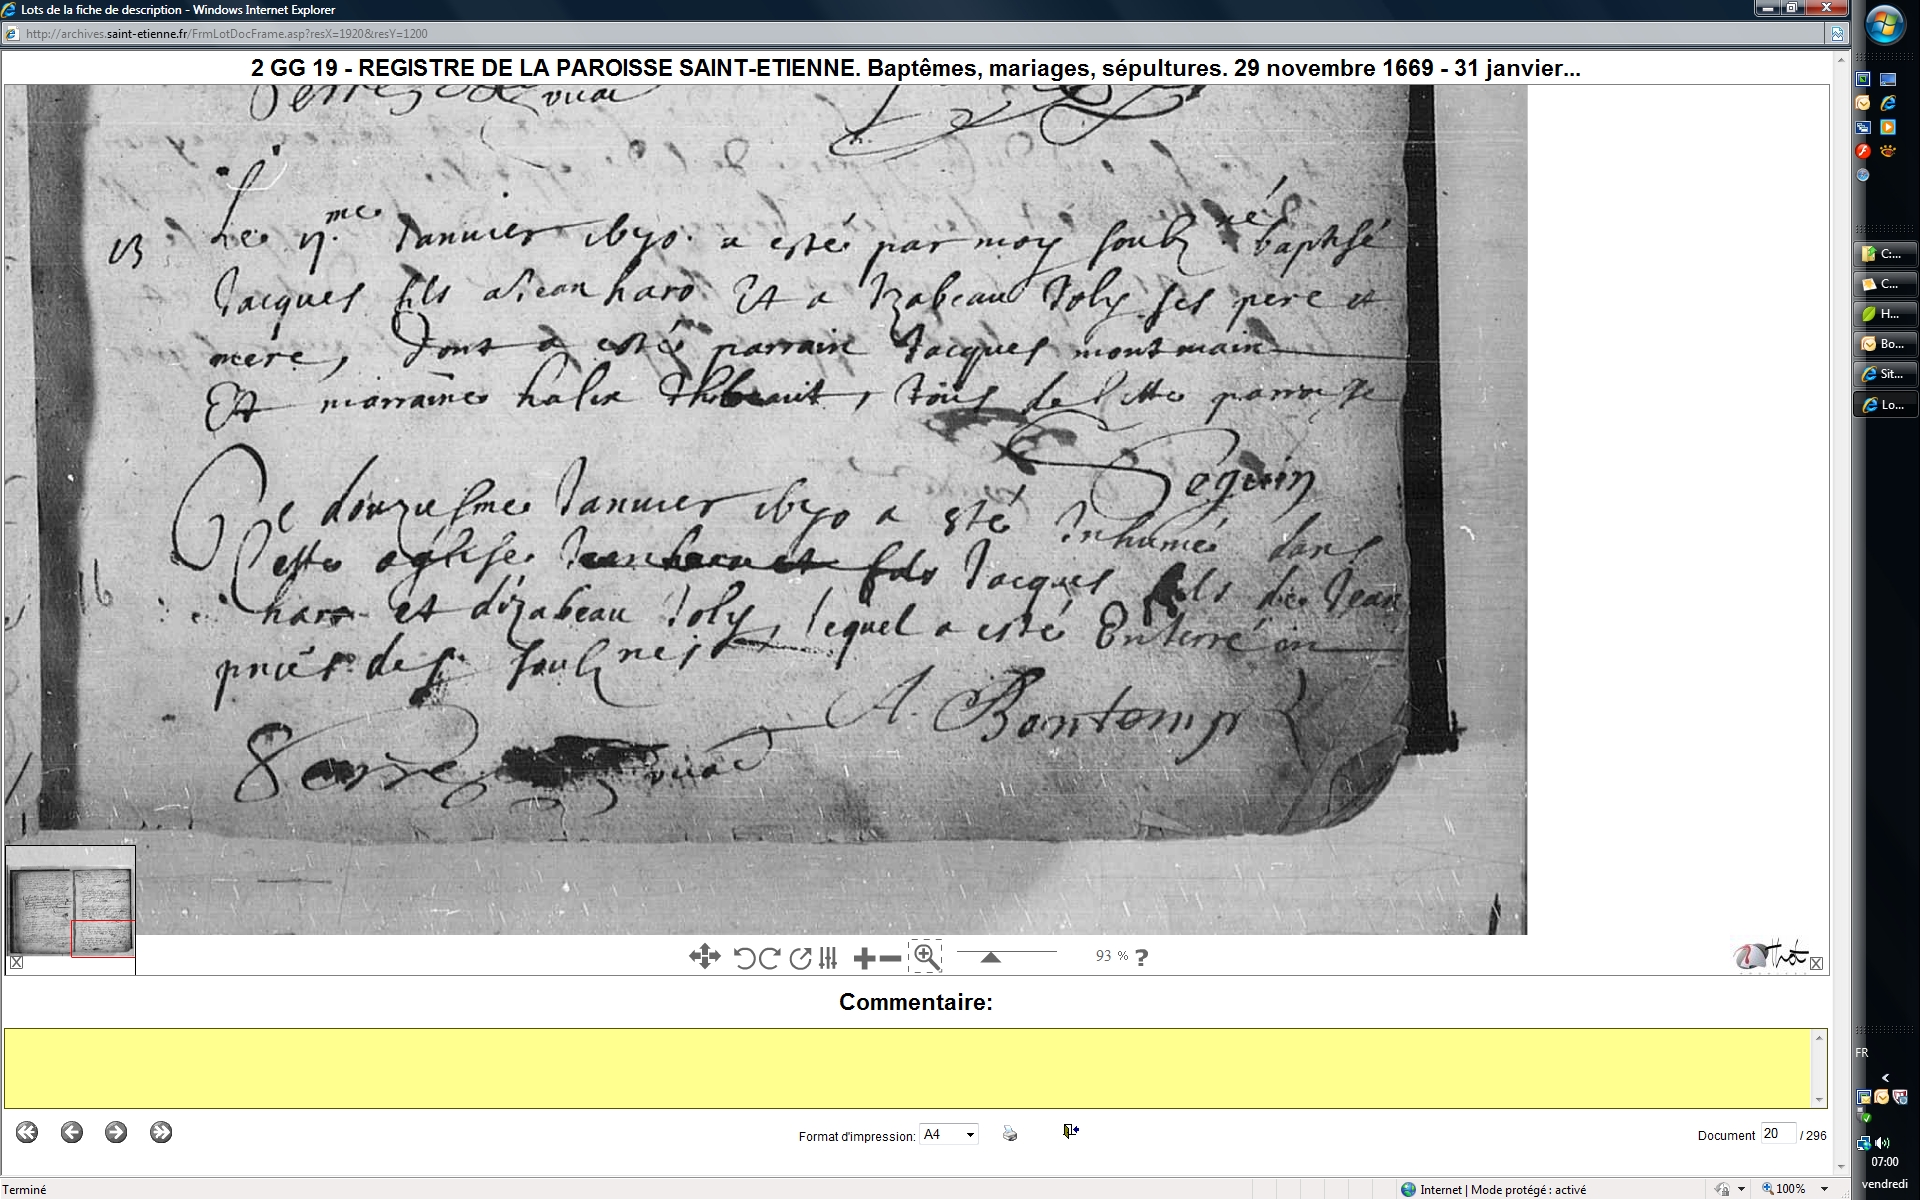 Lots de la fiche de description - Windows Internet Explorer
http://archives.saint-etienne.fr/FrmLotDocFrame.asp?resX=1920&resY=1200
2 GG 19 - REGISTRE DE LA PAROISSE SAINT-ETIENNE. Baptêmes, mariages, sépultures. 29 novembre 1669 - 31 janvier...
Le me Januier 1670 a esté par moy soubzné baptisé
Jacques fils a Jean haro Et a Izabeau Joly ses pere et
mere, Dont a esté parrain Jacques montmain
Et marraine halix Thibaut, tous de cette parroisse
Seguin
Ce douziesme Januier 1670 a esté Inhumé dans
Cette eglise Jacques fils de Jean
haro et dizabeau Joly, lequel a esté Enterré en
pnce des soubznes
A. Bontemps
Serre
C:...
C...
H...
Bo...
Sit...
Lo...
93 % ?
Commentaire:
Format d'impression: A4
Document 20 / 296
Terminé
Internet | Mode protégé : activé
100%
FR
07:00
vendredi